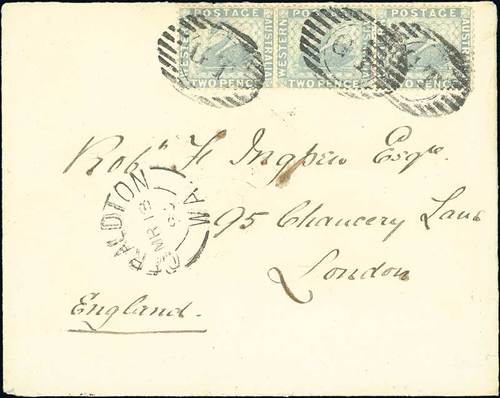 WESTERN POSTAGE AUSTRALIA TWO PENCE
WESTERN POSTAGE AUSTRALIA TWO PENCE
POSTAGE AUSTRALIA TWO PENCE
Robt F Ingpen Esqre
95 Chancery Lane
London
England.
GERALDTON W.A.
MR 18